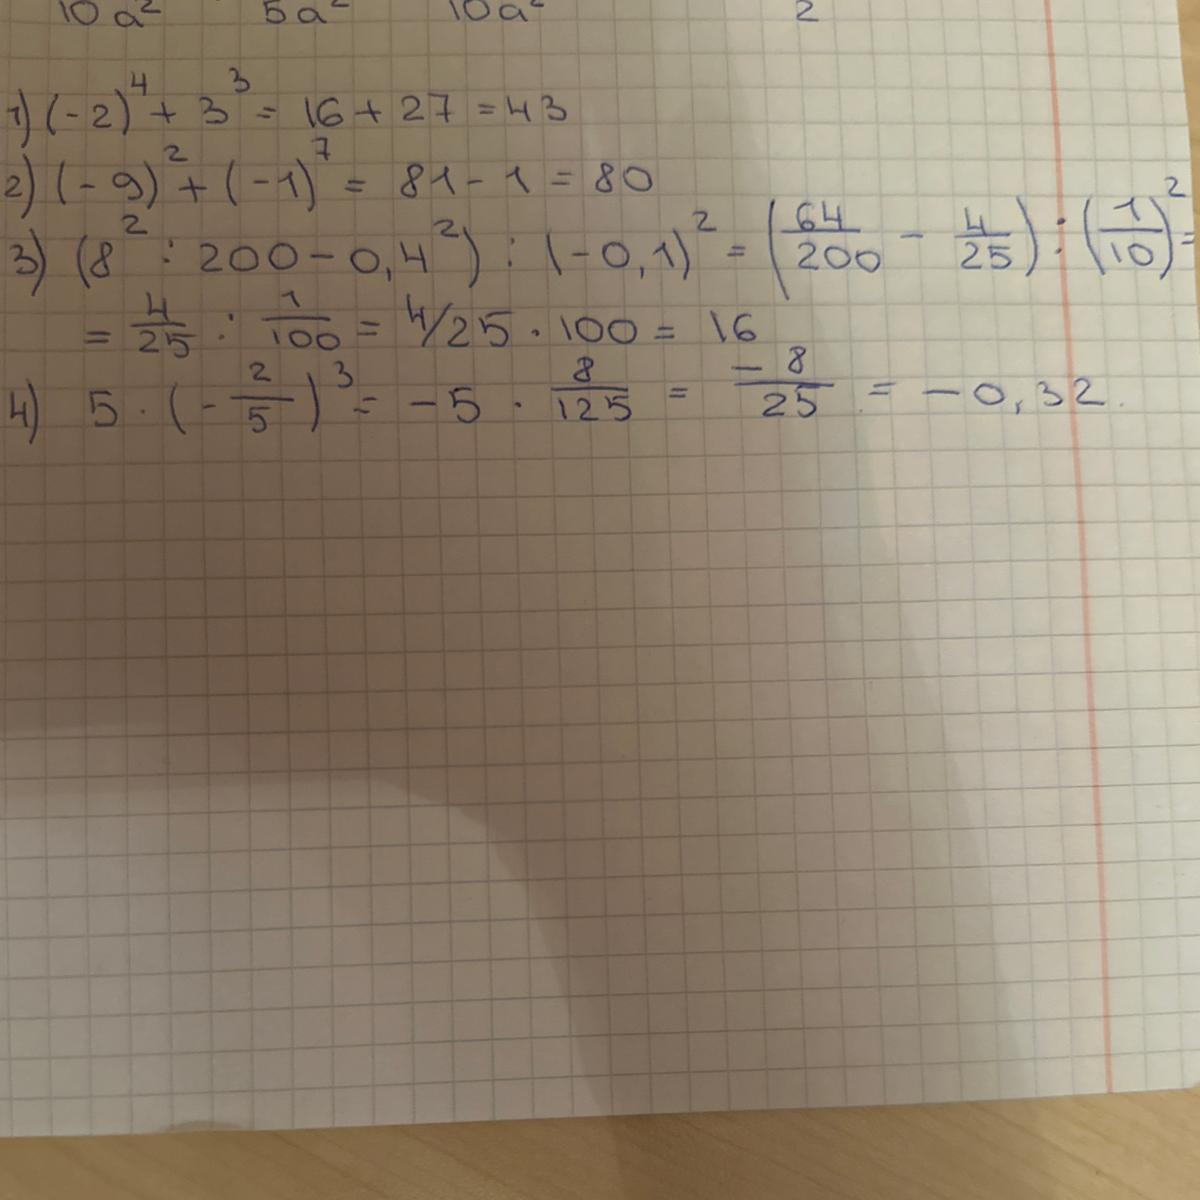 10a² 5a² 10a² 2
1) (-2)⁴ + 3³ = 16 + 27 = 43
2) (-9)² + (-1)⁷ = 81 - 1 = 80
3) (8² : 200 - 0,4²) : (-0,1)² = (64/200 - 4/25) : (1/10)² =
= 4/25 : 1/100 = 4/25 · 100 = 16
4) 5 · (-2/5)³ = -5 · 8/125 = -8/25 = -0,32.